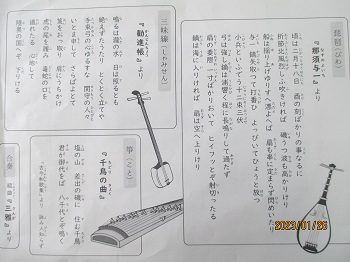 琵琶（びわ）
『那須与一』より
なすのよいち
頃は二月十八日 酉の刻ばかりの事なるに
折節北風烈しく吹きければ 磯うつ波も高かりけり
船は揺り上げゆりすへ漂へば 扇も串に定まらず閃めいた
与一鏑取って打番ひ よっぴいてひょうと放つ
小兵といふでう十二束三伏
弓は強し鏑は浦響く程に長鳴りして過たず
扇の要際 一寸ばかりおいて ヒイフッとぞ射切ったる
鏑は海に入りければ 扇は空へ上りける
三味線（しゃみせん）
『勧進帳』より
かんじんちょう
鳴るは瀧の水 日は照るとも
絶えずとうたり とくとく立てや
手束弓の心ゆるすな 関守の人々
いとま申して さらばよとて
笈をおっ取り 肩にうちかけ
虎の尾を踏み 毒蛇の口を
遁れたる 心地して
陸奥の国へぞ 下りける
箏（こと）
『千鳥の曲』
ちどりのきょく
塩の山 差出の磯に 住む千鳥
君が御代をば 八千代とぞ鳴く
合奏
『三 雅』
2023/01/26